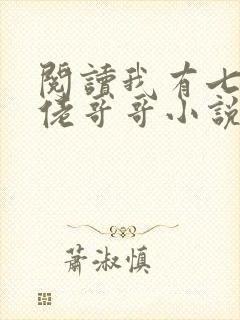 閱讀我有七
佬哥哥小說
蕭淑慎